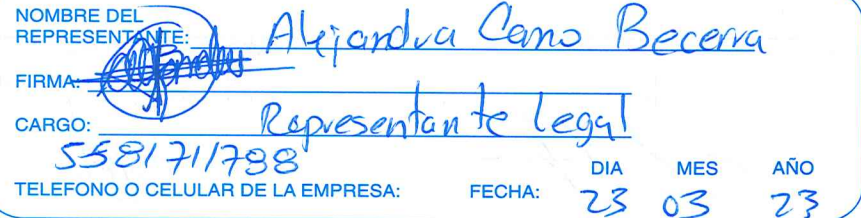 NOMBRE DEL
REPRESENTANTE: Alejandra Cano Becerra
FIRMA:
CARGO: Representante legal
5581711788
TELEFONO O CELULAR DE LA EMPRESA: FECHA: DIA 23 MES 03 AÑO 23